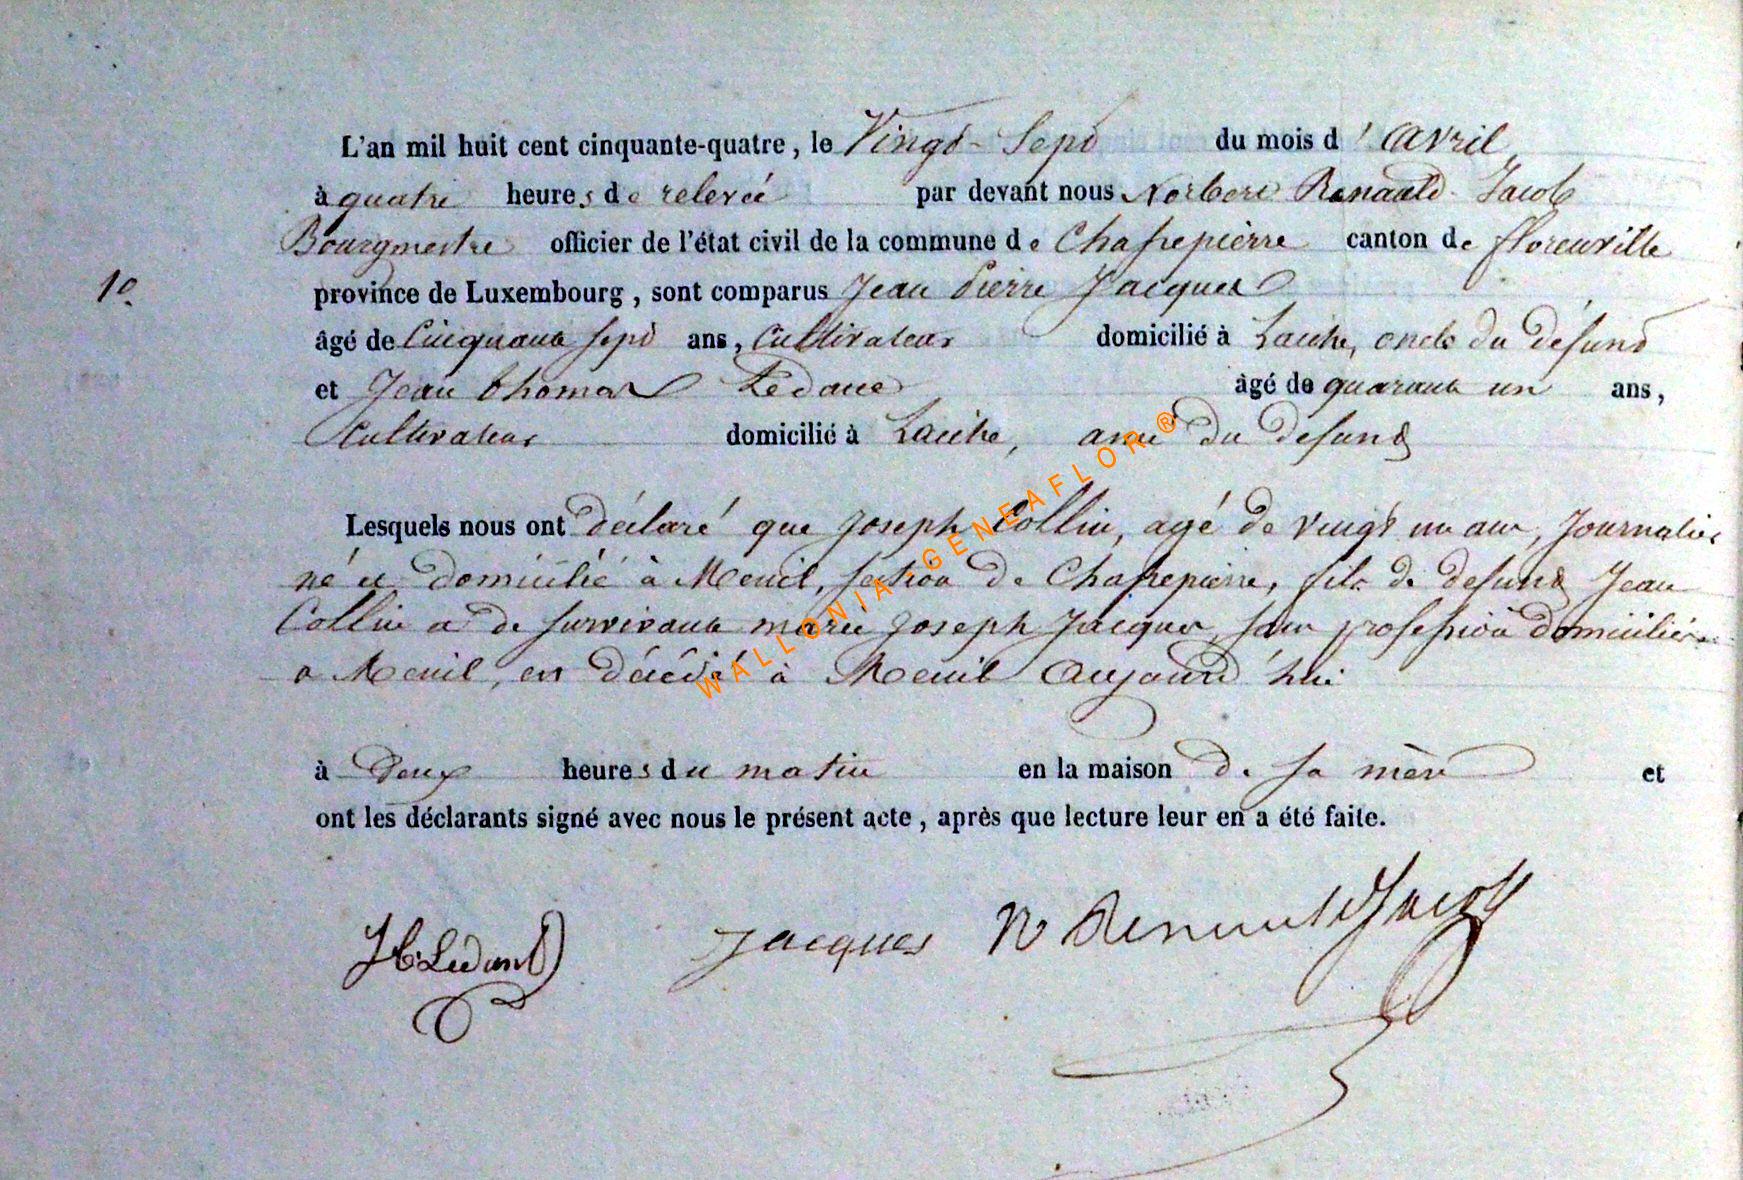 L'an mil huit cent cinquante-quatre, le Vingt-Sept du mois d'avril
à quatre heures de relevée par devant nous Norbert Renauld Jacob
Bourgmestre officier de l'état civil de la commune de Chassepierre canton de florenville
1o province de Luxembourg, sont comparus Jean Pierre Jacques
âgé de Cinquante sept ans, Cultivateur domicilié à Laiche, oncle du défunt
et Jean thomas Ledant âgé de quarante un ans,
Cultivateur domicilié à Laiche, ami du defunt
Lesquels nous ont déclaré que Joseph Collin, agé de vingt un ans, Journalier
né et domicilié à Menil, section de Chassepierre, fils de defunt Jean
Collin et de survivante marie Joseph Jacques, sans profession domiciliée
a Menil, est décédé à Menil Aujourd'hui
à deux heures du matin en la maison de sa mère et
ont les déclarants signé avec nous le présent acte, après que lecture leur en a été faite.
Ledant Jacques N Renauld Jacob
WALLONIA-GENEAFLOR ®